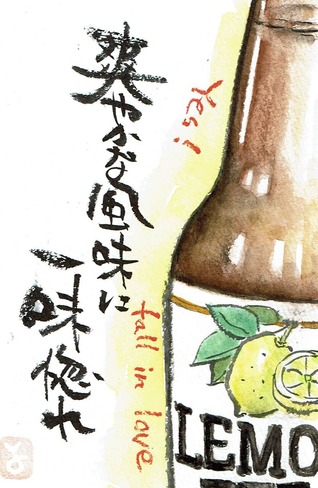 爽やかな風味に
一味惚れ
Yes!
fall in love
LEMO